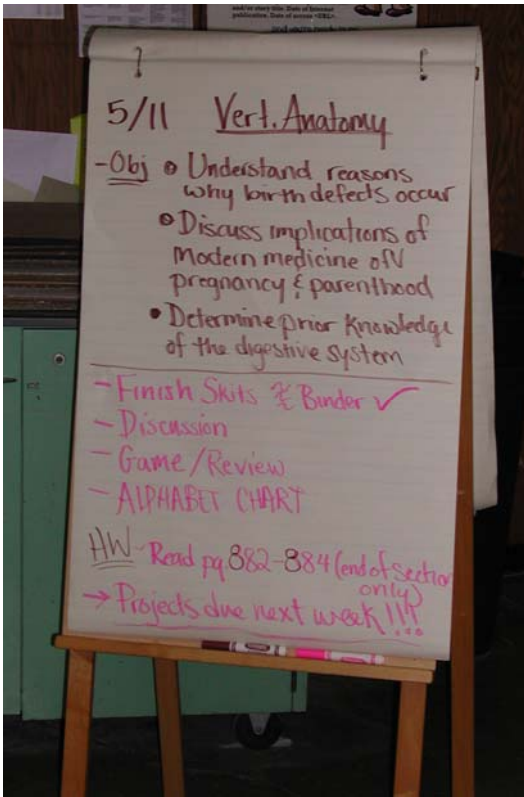 and/or story title. Date of Internet
publication. Date of access <URL>.
5/11 Vert. Anatomy
-Obj • Understand reasons
why birth defects occur
• Discuss implications of
Modern medicine on
pregnancy & parenthood
• Determine prior knowledge
of the digestive system
- Finish Skits & Binder ✓
- Discussion
- Game/Review
- ALPHABET CHART
HW - Read pg. 882-884 (end of section
only)
→ Projects due next week!!!